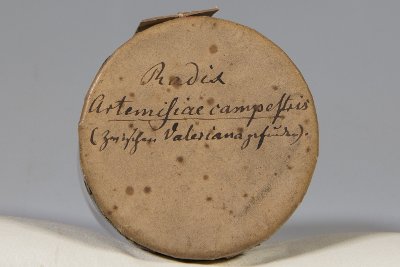 Radix
Artemisiae campestris
(zwischen Valeriana gefunden).